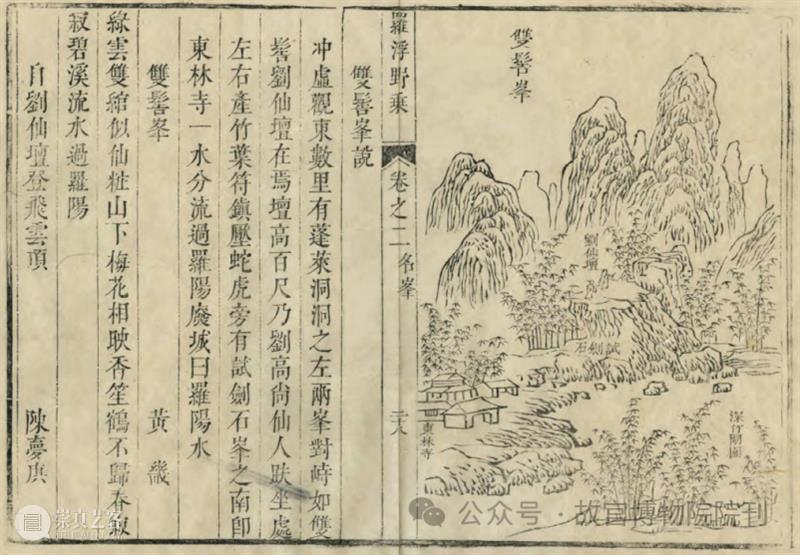 雙髻峯
劉仙壇
試劍石
東林寺
羅浮野乘
卷之二
名峯
雙髻峯說
冲虛觀東數里有蓬萊洞洞之左兩峯對峙如雙
髻劉仙壇在焉壇高百尺乃劉高尙仙人趺坐處
左右產竹葉符鎭壓蛇虎旁有試劍石峯之南卽
東林寺一水分流過羅陽廢城曰羅陽水
雙髻峯 黃畿
綠雲雙綰似仙粧山下梅花相映香笙鶴不歸春寂
寂碧溪流水過羅陽
自劉仙壇登飛雲頂 陳夢庚
崇真艺客
公众号·故宫博物院院刊